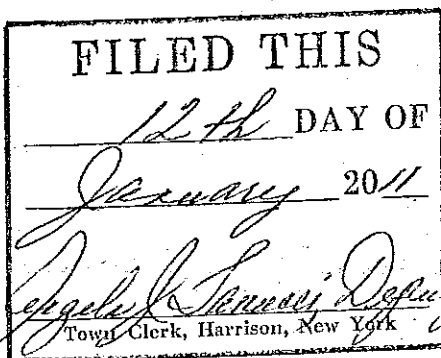 FILED THIS
12th DAY OF
January 2011
Angela
Town Clerk, Harrison, New York